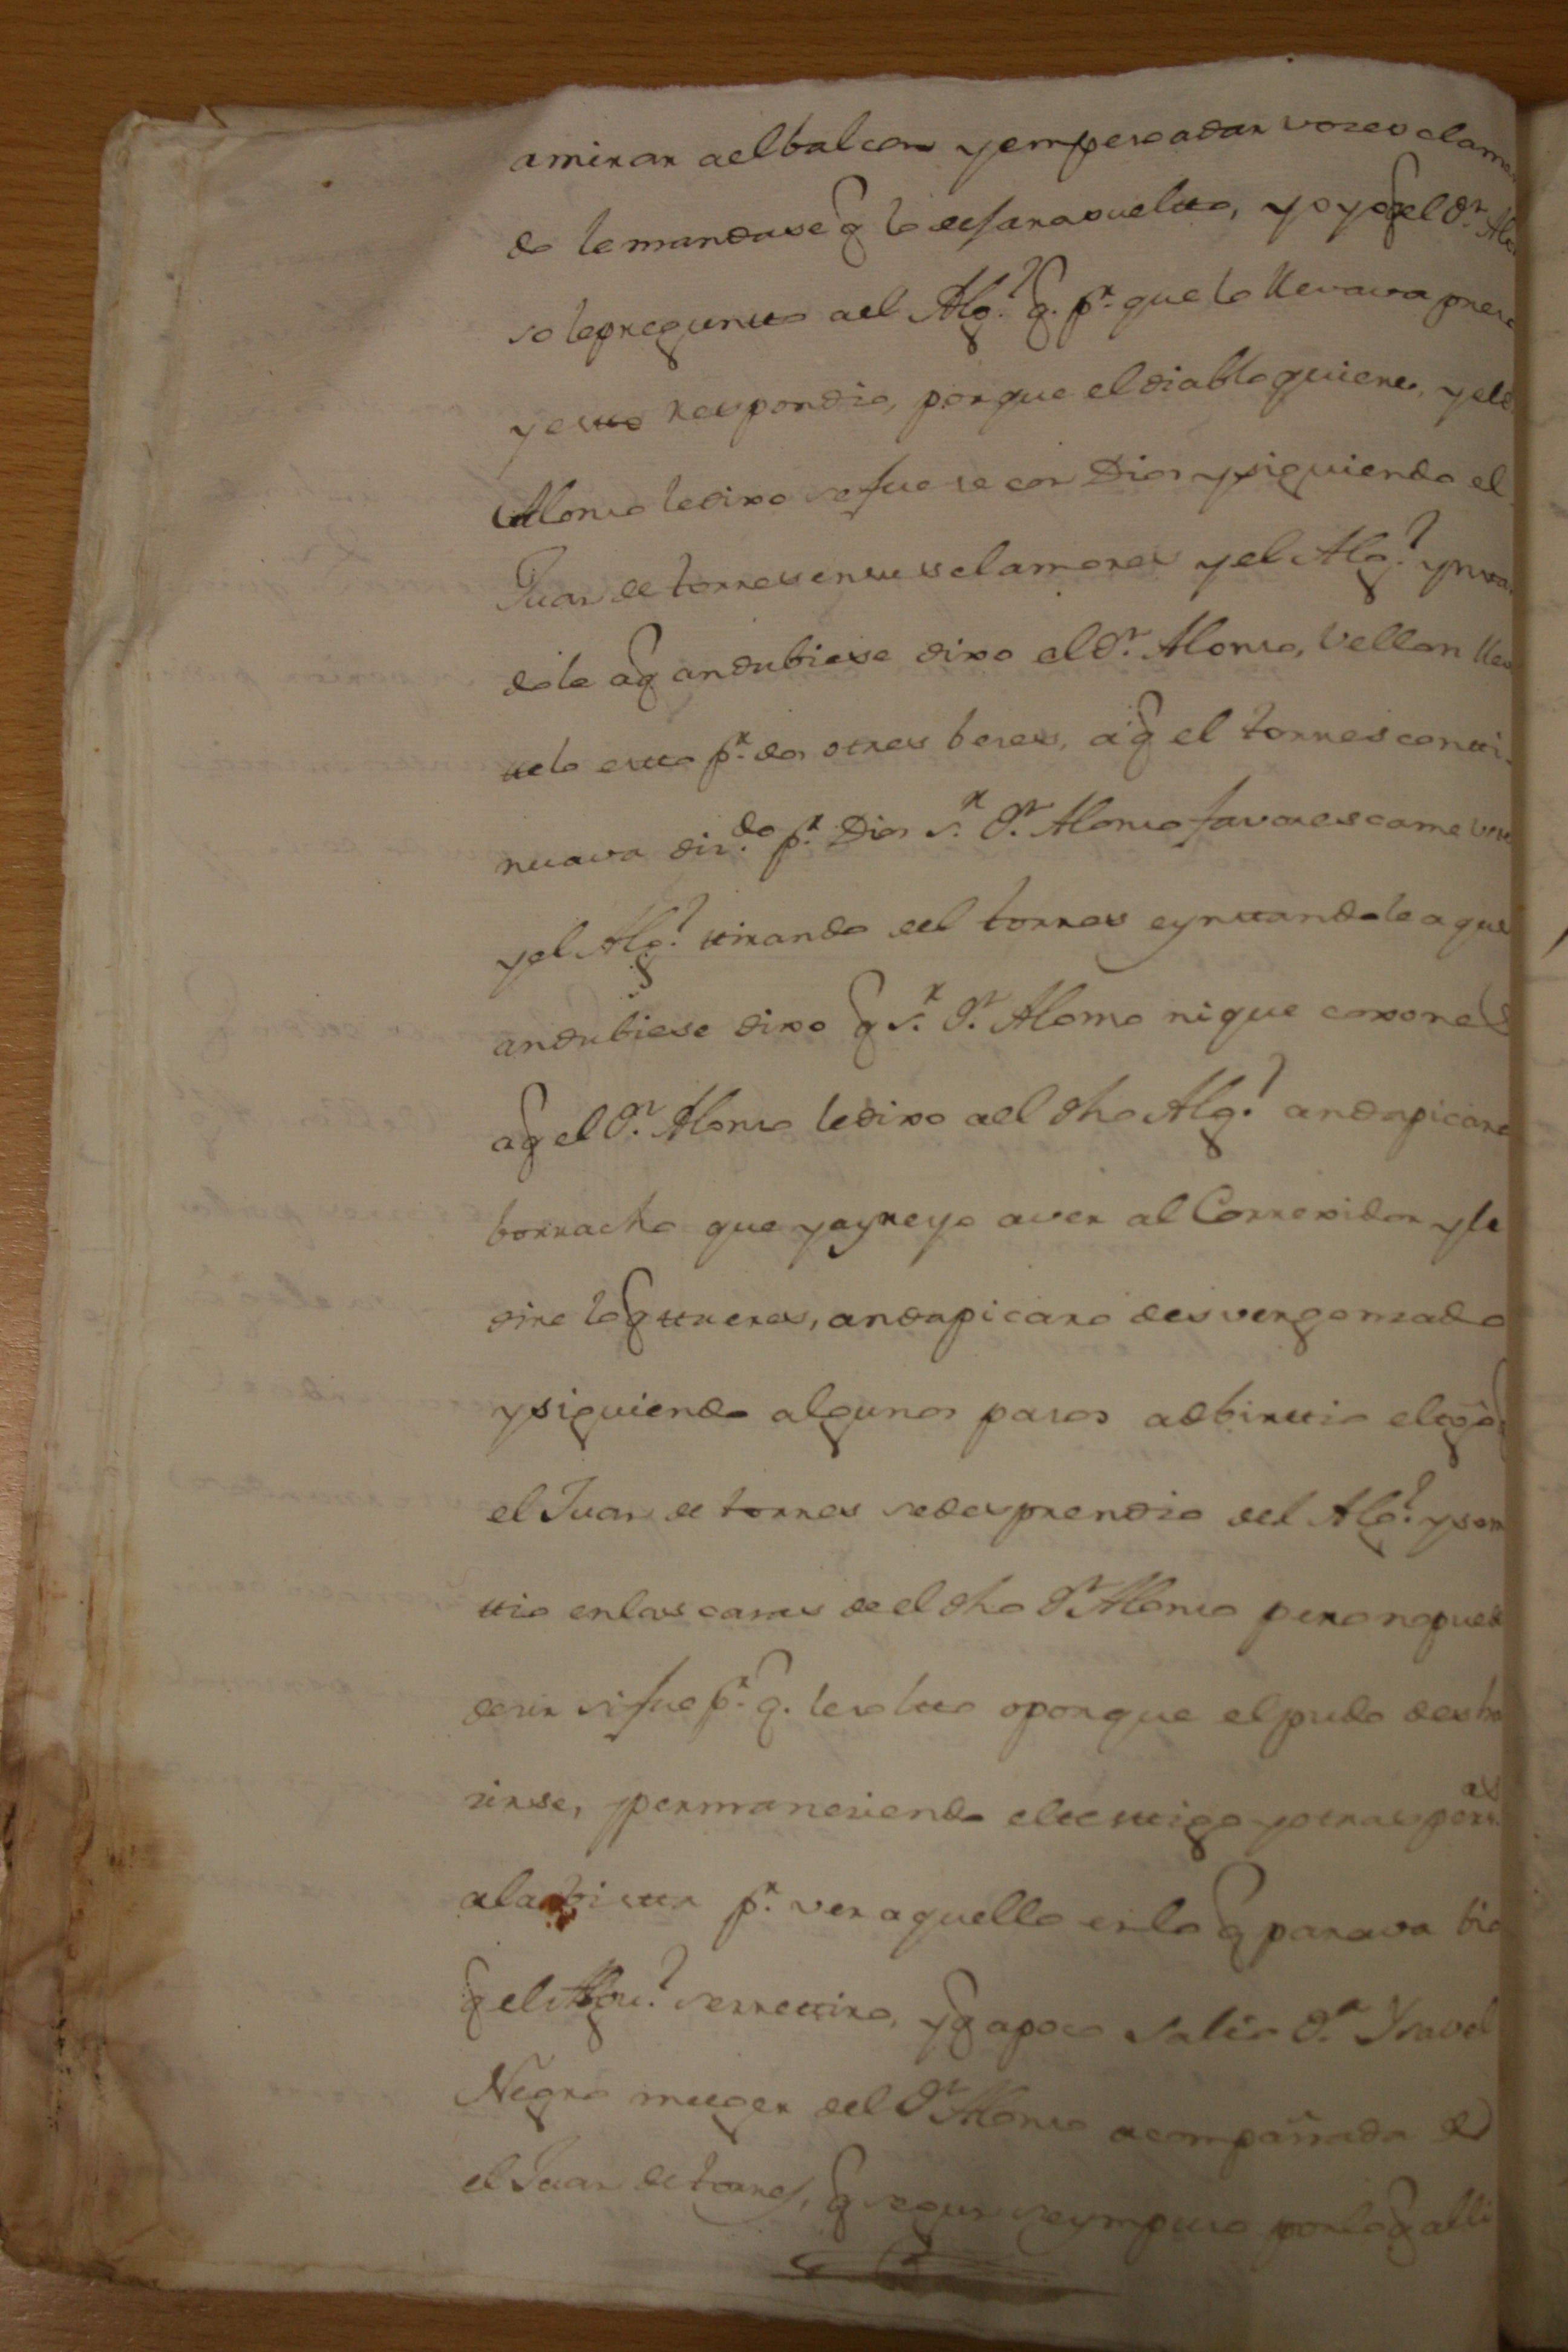 amirar aelbalcon yempeso adar vozes clama
do lemandase q̃ lo dejara suelto, yoyo q̃ el Dn. Alo
so lepregunto ael Algl. q. pr. que lo llevava preso
yesto Respondio, porque eldiablo quiere, yel D.
Alonso ledixo sefuese con Dios ysiguiendo el
Juan de torres ensus clamores yel Algl. ynsta
dole aq̃ andubiese dixo el Dn. Alonso, Vellon
uelo esto pr. dos otres beses, aq̃ el torres conti
nuava disdo. pr. Dios Sr. Dn. Alonso favorescame
yel Algl. tirando del torres eynstandole aque
andubiese dixo q̃ Sr. Dn. Alonso nique
aq̃ el Dn. Alonso ledixo ael dho Algl. andapicaro
borracho que yayreyo aver al Correxidor yle
dire loq̃ tueres, andapicaro desvergonzado
ysiguiendo algunos pasos adbirtio eltgo q̃
el Juan de torres sedesprendio del Algl. yse m
tio enlas casas de el dho Dn Alonso pero nopued
desir sifue pr. q. lesolto oporque elpudo desha
sirse, ypermanesiendo eltestigo yotras persas.
alabista pr. ver aquello enlo q̃ parava bio
q̃ el Algul. serretiro, yq̃ apoco salio Da. Ysavel
Negro muger del Dn Alonso acompañada de
el Juan de torres, q̃ segun seympuso porloq̃ alli